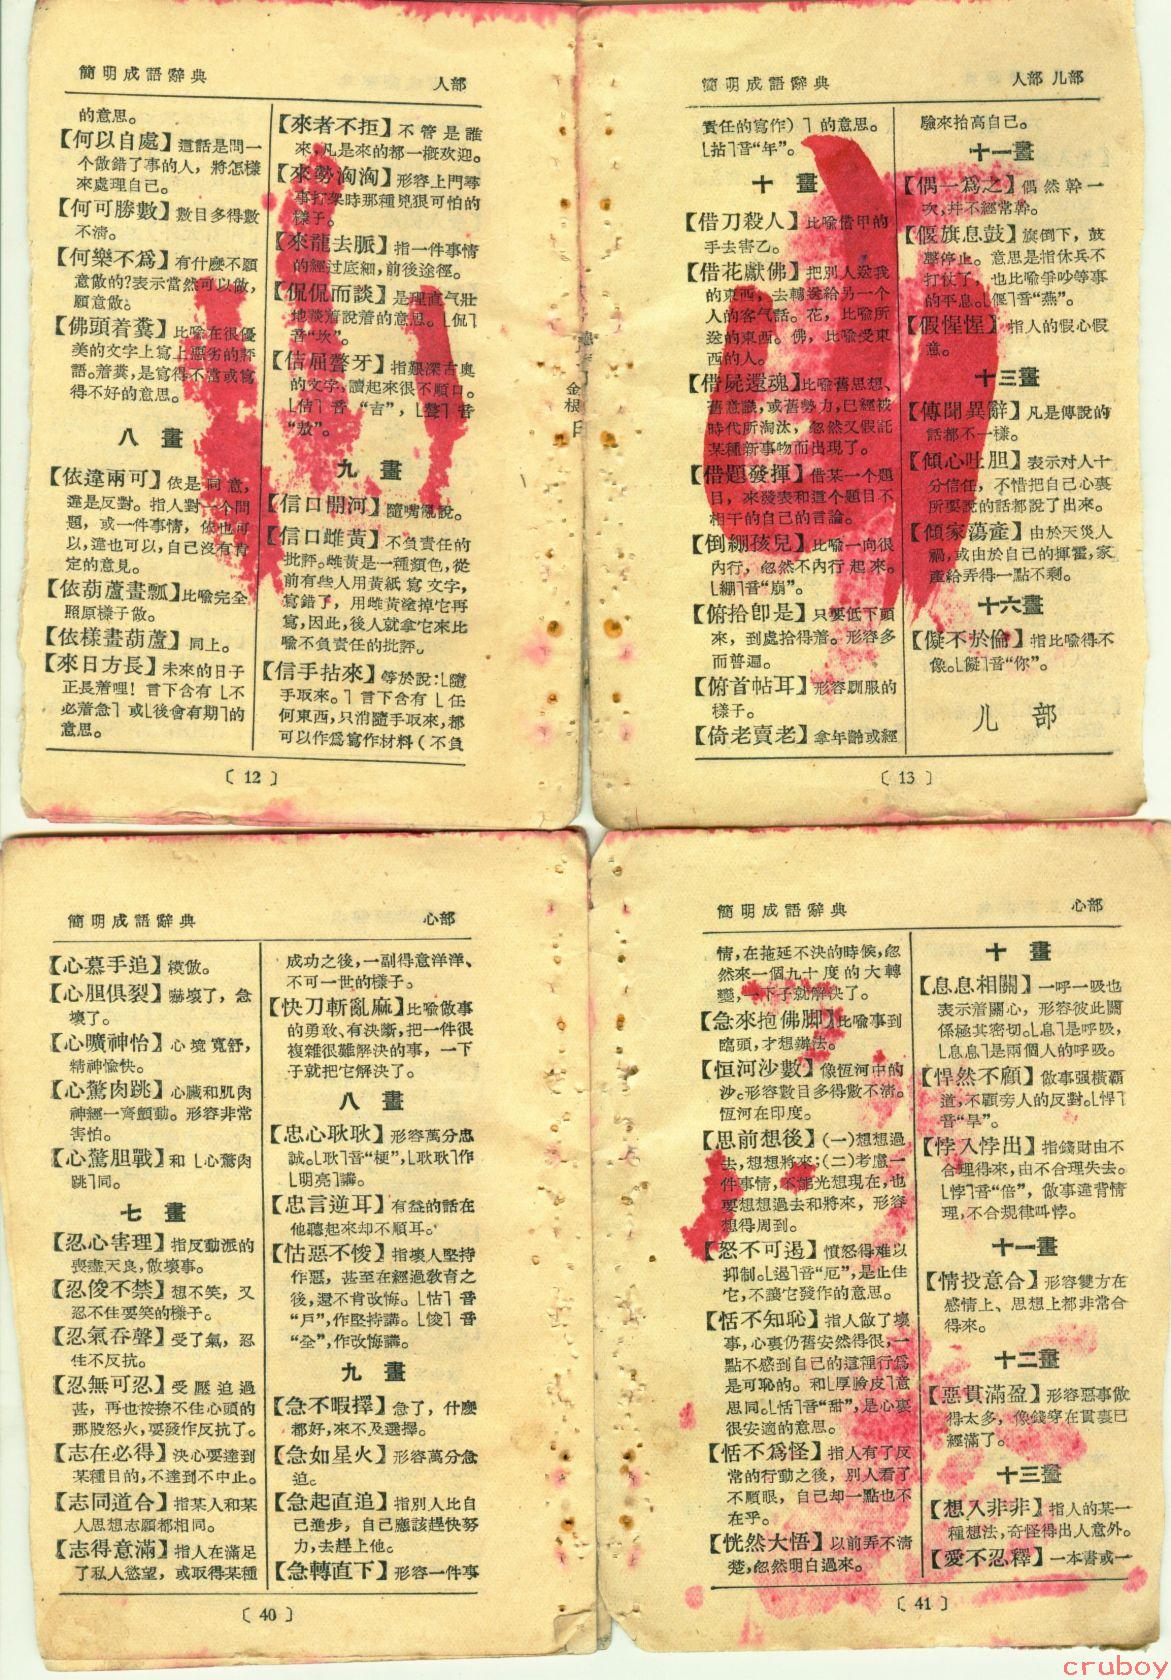 簡明成語辭典
人部
的意思。
【何以自處】這話是問一
个做錯了事的人，將怎樣
來處理自己。
【何可勝數】數目多得數
不清。
【何樂不爲】有什麽不願
意做的?表示當然可以做，
願意做。
【佛頭着糞】比喻在很優
美的文字上寫上惡劣的評
語。着糞，是寫得不當或寫
得不好的意思。
八畫
【依違兩可】依是同意，
違是反對。指人對一个問
題，或一件事情，依也可
以，違也可以，自己沒有肯
定的意見。
【依葫蘆畫瓢】比喻完全
照原樣子做。
【依樣畫葫蘆】同上。
【來日方長】未來的日子
正長着哩！言下含有⎣不
必着急⎤或⎣後會有期⎤的
意思。
【來者不拒】不管是誰
來，凡是來的都一概欢迎。
【來勢洶洶】形容上門尋
事打架時那種兇狠可怕的
樣子。
【來龍去脈】指一件事情
的經过底細，前後途徑。
【侃侃而談】是理直气壯
地談着說着的意思。⎣侃⎤
音“坎”。
【佶屈聱牙】指艱深古奥
的文字，讀起來很不順口。
⎣佶⎤音“吉”，⎣聱⎤音
“敖”。
九畫
【信口開河】隨嘴亂說。
【信口雌黃】不負責任的
批評。雌黃是一種顏色，從
前有些人用黃紙寫文字，
寫錯了，用雌黃塗掉它再
寫，因此，後人就拿它來比
喻不負責任的批評。
【信手拈來】等於說：⎣隨
手取來。⎤言下含有⎣任
何東西，只消隨手取來，都
可以作爲寫作材料（不負
〔12〕
簡明成語辭典
人部 儿部
責任的寫作）⎤的意思。
⎣拈⎤音“年”。
十畫
【借刀殺人】比喻借甲的
手去害乙。
【借花獻佛】把別人送我
的東西，去轉送給另一个
人的客气話。花，比喻所
送的東西。佛，比喻受東
西的人。
【借屍還魂】比喻舊思想、
舊意識，或舊勢力，已經被
時代所淘汰，忽然又假託
某種新事物而出現了。
【借題發揮】借某一个題
目，來發表和這个題目不
相干的自己的言論。
【倒綳孩兒】比喻一向很
内行，忽然不内行起來。
⎣綳⎤音“崩”。
【俯拾卽是】只要低下頭
來，到處拾得着。形容多
而普遍。
【俯首帖耳】形容馴服的
樣子。
【倚老賣老】拿年齡或經
驗來抬高自己。
十一畫
【偶一爲之】偶然幹一
次，并不經常幹。
【偃旗息鼓】旗倒下，鼓
聲停止。意思是指休兵不
打仗了，也比喻爭吵等事
的平息。⎣偃⎤音“燕”。
【假惺惺】指人的假心假
意。
十三畫
【傳聞異辭】凡是傳說的
話都不一樣。
【傾心吐胆】表示对人十
分信任，不惜把自己心裏
所要說的話都說了出來。
【傾家蕩產】由於天災人
禍，或由於自己的揮霍，家
產給弄得一點不剩。
十六畫
【儗不於倫】指比喻得不
像。⎣儗⎤音“你”。
儿部
〔13〕
簡明成語辭典
心部
【心慕手追】模倣。
【心胆俱裂】嚇壞了，急
壞了。
【心曠神怡】心境寬舒，
精神愉快。
【心驚肉跳】心臟和肌肉
神經一齊顫動。形容非常
害怕。
【心驚胆戰】和⎣心驚肉
跳⎤同。
七畫
【忍心害理】指反動派的
喪盡天良，做壞事。
【忍俊不禁】想不笑，又
忍不住要笑的樣子。
【忍氣吞聲】受了氣，忍
住不反抗。
【忍無可忍】受壓迫過
甚，再也按捺不住心頭的
那股怒火，要發作反抗了。
【志在必得】決心要達到
某種目的，不達到不中止。
【志同道合】指某人和某
人思想志願都相同。
【志得意滿】指人在滿足
了私人慾望，或取得某種
成功之後，一副得意洋洋、
不可一世的樣子。
【快刀斬亂麻】比喻做事
的勇敢、有決斷，把一件很
複雜很難解決的事，一下
子就把它解決了。
八畫
【忠心耿耿】形容萬分忠
誠。⎣耿⎤音“梗”，⎣耿耿⎤作
⎣明亮⎤講。
【忠言逆耳】有益的話在
他聽起來却不順耳。
【怙惡不悛】指壞人堅持
作惡，甚至在經過教育之
後，還不肯改悔。⎣怙⎤音
“戶”，作堅持講。⎣悛⎤音
“全”，作改悔講。
九畫
【急不暇擇】急了，什麽
都好，來不及選擇。
【急如星火】形容萬分急
迫。
【急起直追】指別人比自
己進步，自己應該趕快努
力，去趕上他。
【急轉直下】形容一件事
〔40〕
簡明成語辭典
心部
情，在拖延不決的時候，忽
然來一個九十度的大轉
變，一下子就解決了。
【急來抱佛脚】比喻事到
臨頭，才想辦法。
【恒河沙數】像恆河中的
沙。形容數目多得數不清。
恆河在印度。
【思前想後】（一）想想過
去，想想將來；（二）考慮一
件事情，不能光想現在，也
要想想過去和將來，形容
想得周到。
【怒不可遏】憤怒得難以
抑制。⎣遏⎤音“厄”，是止住
它，不讓它發作的意思。
【恬不知恥】指人做了壞
事，心裏仍舊安然得很，一
點不感到自己的這種行爲
是可恥的。和⎣厚臉皮⎤意
思同。⎣恬⎤音“甜”，是心裏
很安適的意思。
【恬不爲怪】指人有了反
常的行動之後，別人看了
不順眼，自己却一點也不
在乎。
【恍然大悟】以前弄不清
楚，忽然明白過來。
十畫
【息息相關】一呼一吸也
表示着關心，形容彼此關
係極其密切。⎣息⎤是呼吸，
⎣息息⎤是兩個人的呼吸。
【悍然不顧】做事强橫霸
道，不顧旁人的反對。⎣悍⎤
音“旱”。
【悖入悖出】指錢財由不
合理得來，由不合理失去。
⎣悖⎤音“倍”，做事違背情
理，不合規律叫悖。
十一畫
【情投意合】形容雙方在
感情上、思想上都非常合
得來。
十二畫
【惡貫滿盈】形容惡事做
得太多，像錢穿在貫裏已
經滿了。
十三畫
【想入非非】指人的某一
種想法，奇怪得出人意外。
【愛不忍釋】一本書或一
〔41〕
cruboy